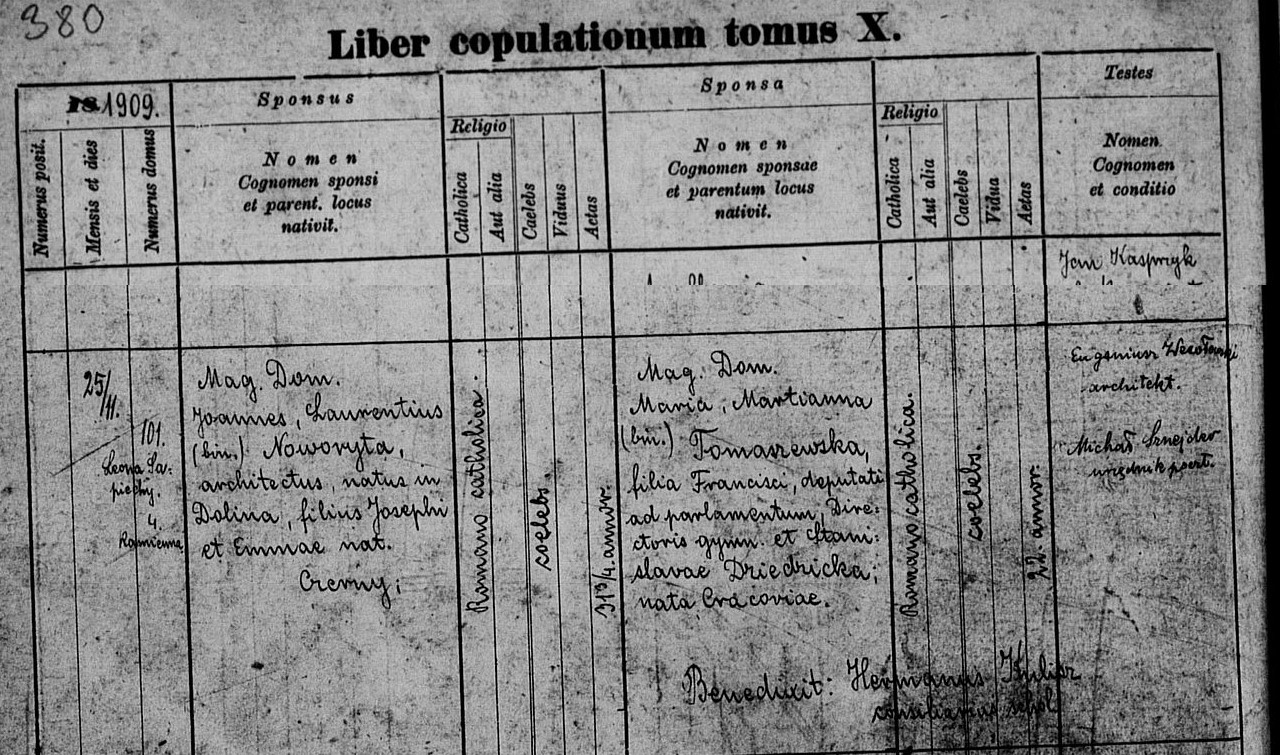 380
Liber copulationum tomus X.
1909.
Numerus posit.
Mensis et dies
Numerus domus
Sponsus
Nomen
Cognomen sponsi
et parent. locus
nativit.
Religio
Catholica
Aut alia
Caelebs
Viduus
Aetas
Sponsa
Nomen
Cognomen sponsae
et parentum locus
nativit.
Religio
Catholica
Aut alia
Caelebs
Vidua
Aetas
Testes
Nomen
Cognomen
et conditio
Jan Kasprzyk
25/
11.
101.
Leona Sa:
piehy.
4.
Kamienna
Mag. Dom.
Joannes, Laurentius
(bin.) Noworyta,
architectus, natus in
Dolina, filius Josephi
et Emmae nat.
Czerny;
Romano catholica.
coelebs.
31 3/4. annor.
Mag. Dom.
Maria, Martianna
(bin.) Tomaszewska,
filia Francisci, deputati
ad parlamentum, Dire:
ctoris gymn. et Stani:
slavae Dziedzicka;
nata Cracoviae.
Romano catholica.
coelebs.
22. annor.
Eugeniusz Wesołowski
architekt.
Michał Sznejder
urzędnik poczt.
Benedixit: Hermanus
consiliarius schol.